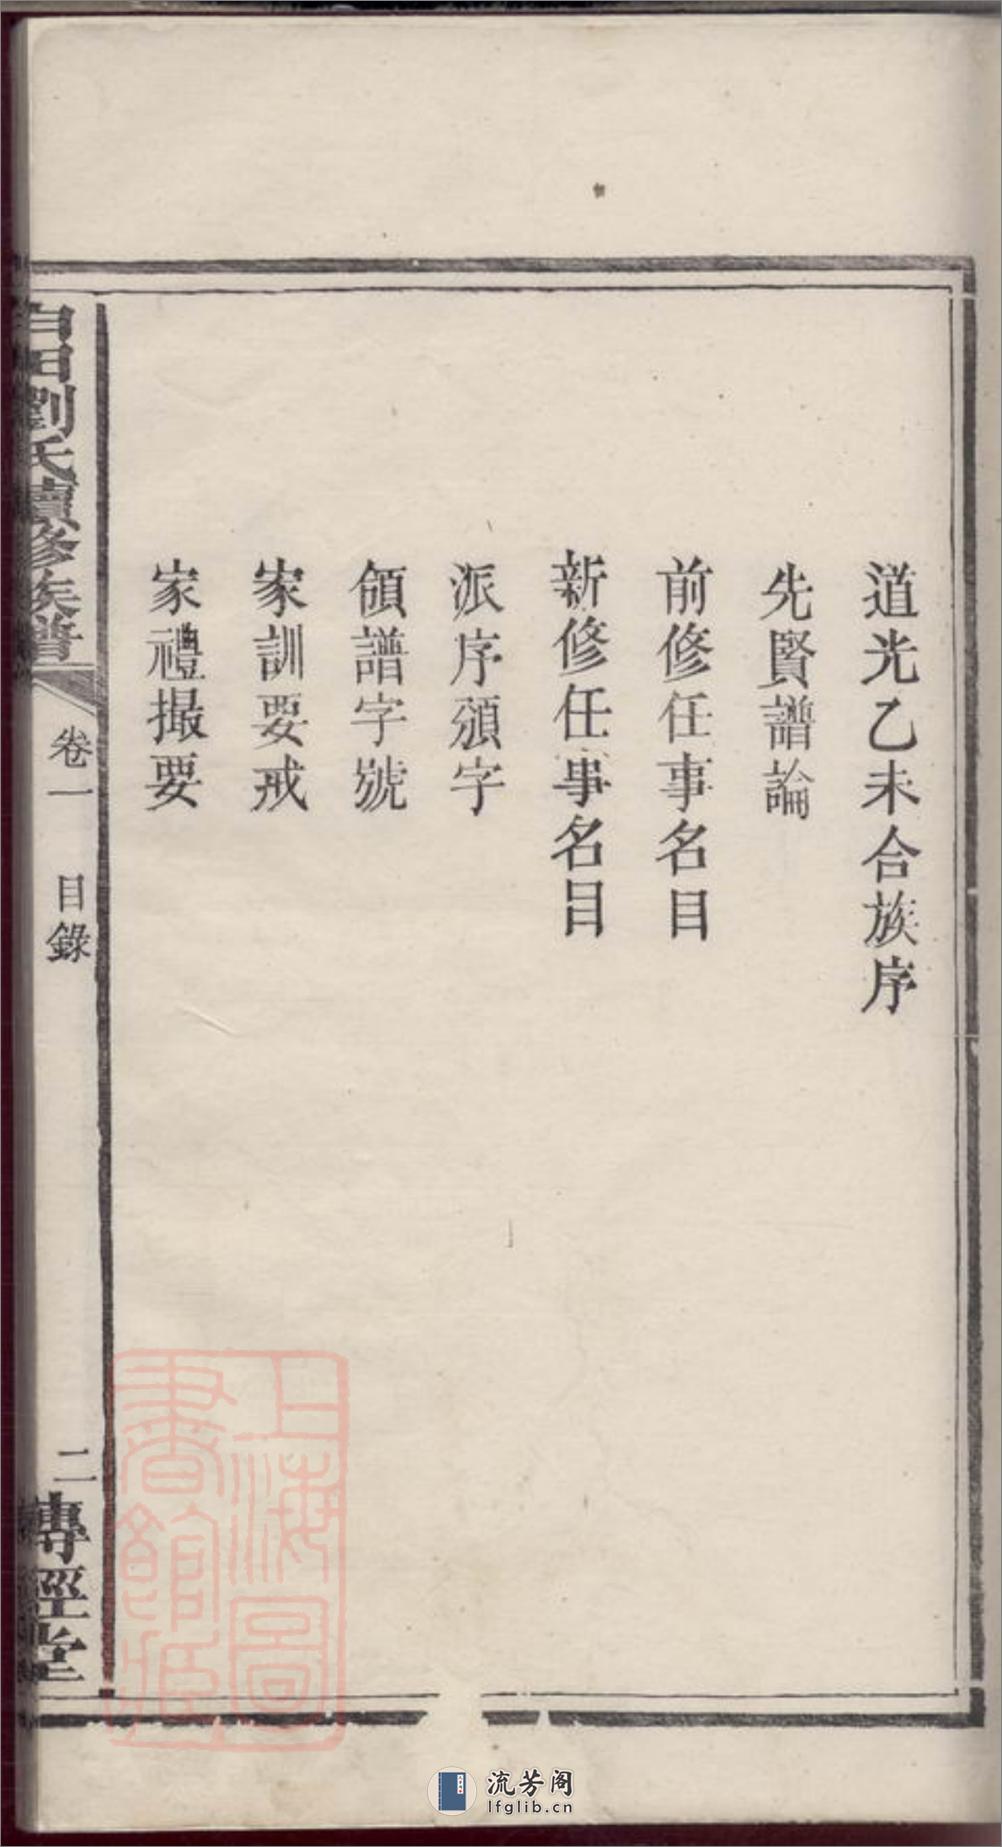 道光乙未合族序
先賢譜論
前修任事名目
新修任事名目
派序頒字
領譜字號
家訓要戒
家禮撮要
白田劉氏續修族譜
卷一
目錄
二
傳經堂
上海圖
書館藏
流芳阁
lfglib.cn